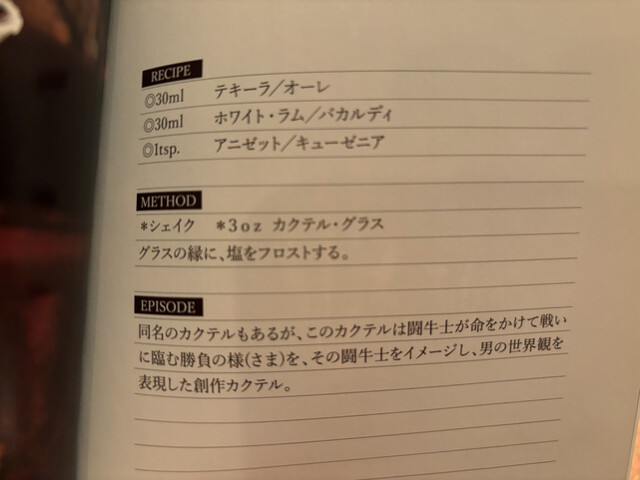 RECIPE
◎30ml テキーラ/オーレ
◎30ml ホワイト・ラム/バカルディ
◎1tsp. アニゼット/キューゼニア
METHOD
*シェイク *3oz カクテル・グラス
グラスの縁に、塩をフロストする。
EPISODE
同名のカクテルもあるが、このカクテルは闘牛士が命をかけて戦い
に臨む勝負の様(さま)を、その闘牛士をイメージし、男の世界観を
表現した創作カクテル。